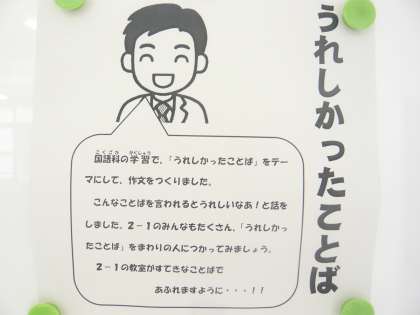 うれしかったことば
国語科の学習で、「うれしかったことば」をテー
マにして、作文をつくりました。
こんなことばを言われるとうれしいなあ!と話を
しました。2-1のみんなもたくさん、「うれしかっ
たことば」をまわりの人につかってみましょう。
2-1の教室がすてきなことばで
あふれますように・・・!!